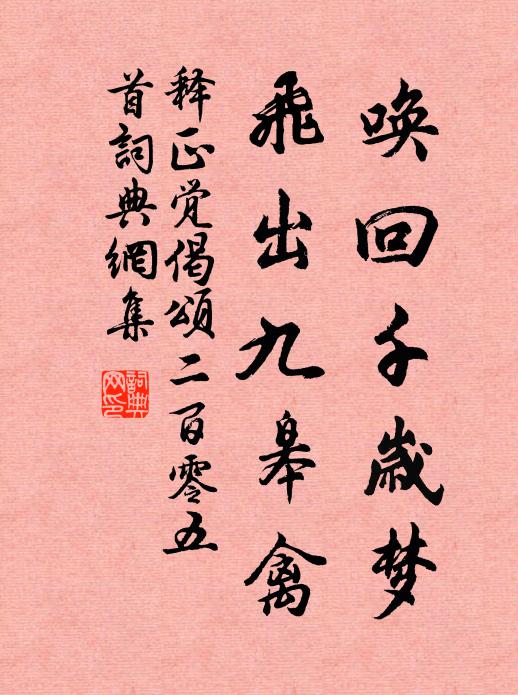 唤回千岁梦
飞出九皋禽
释正觉偈頌二百零五
首詞典網集
詞典
网印